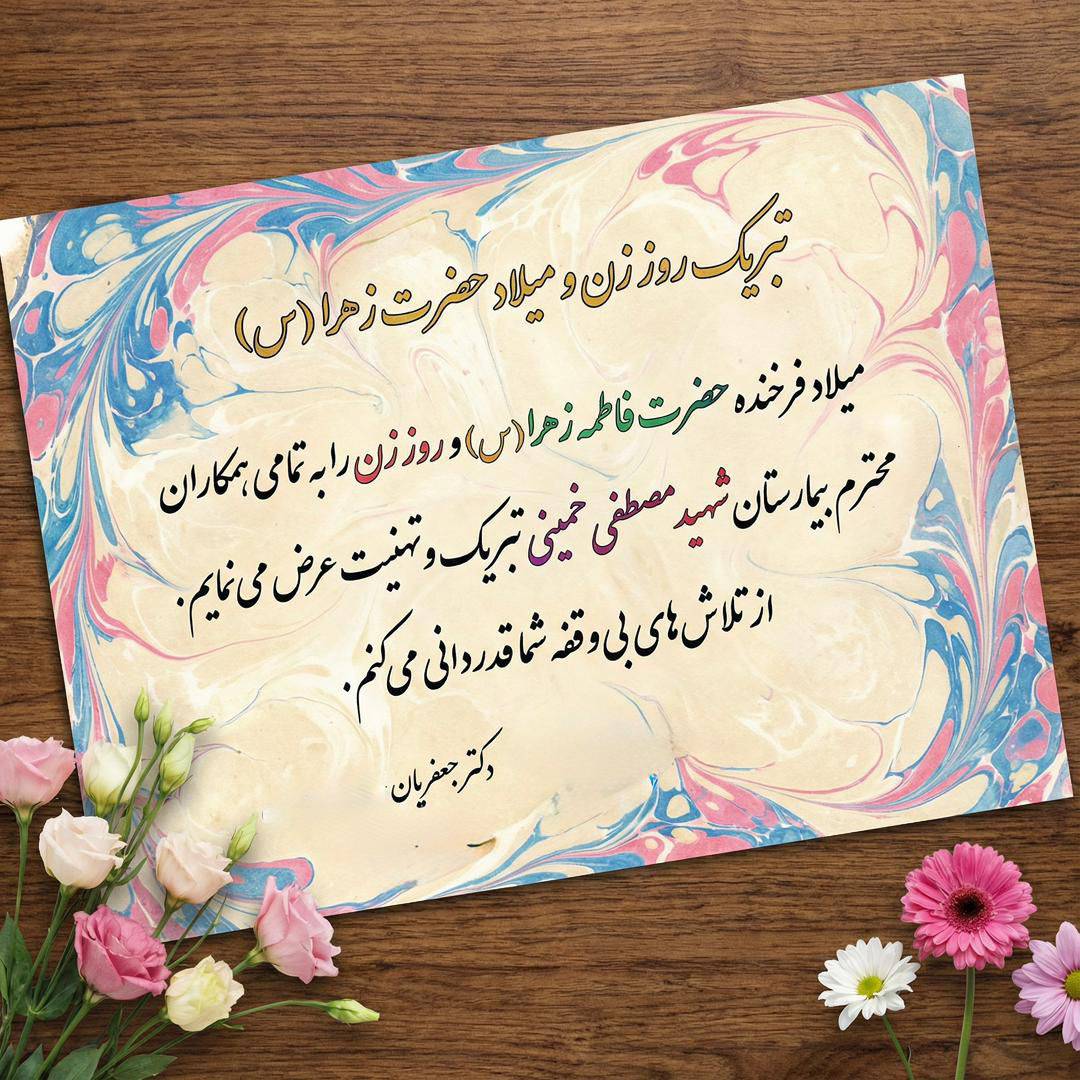 تبریک روز زن و میلاد حضرت زهرا (س)
میلاد فرخنده حضرت فاطمه زهرا (س) و روز زن را به تمامی همکاران
محترم بیمارستان شهید مصطفی خمینی تبریک و تهنیت عرض می نمایم.
از تلاش های بی وقفه شما قدردانی می کنم.
دکتر جعفریان